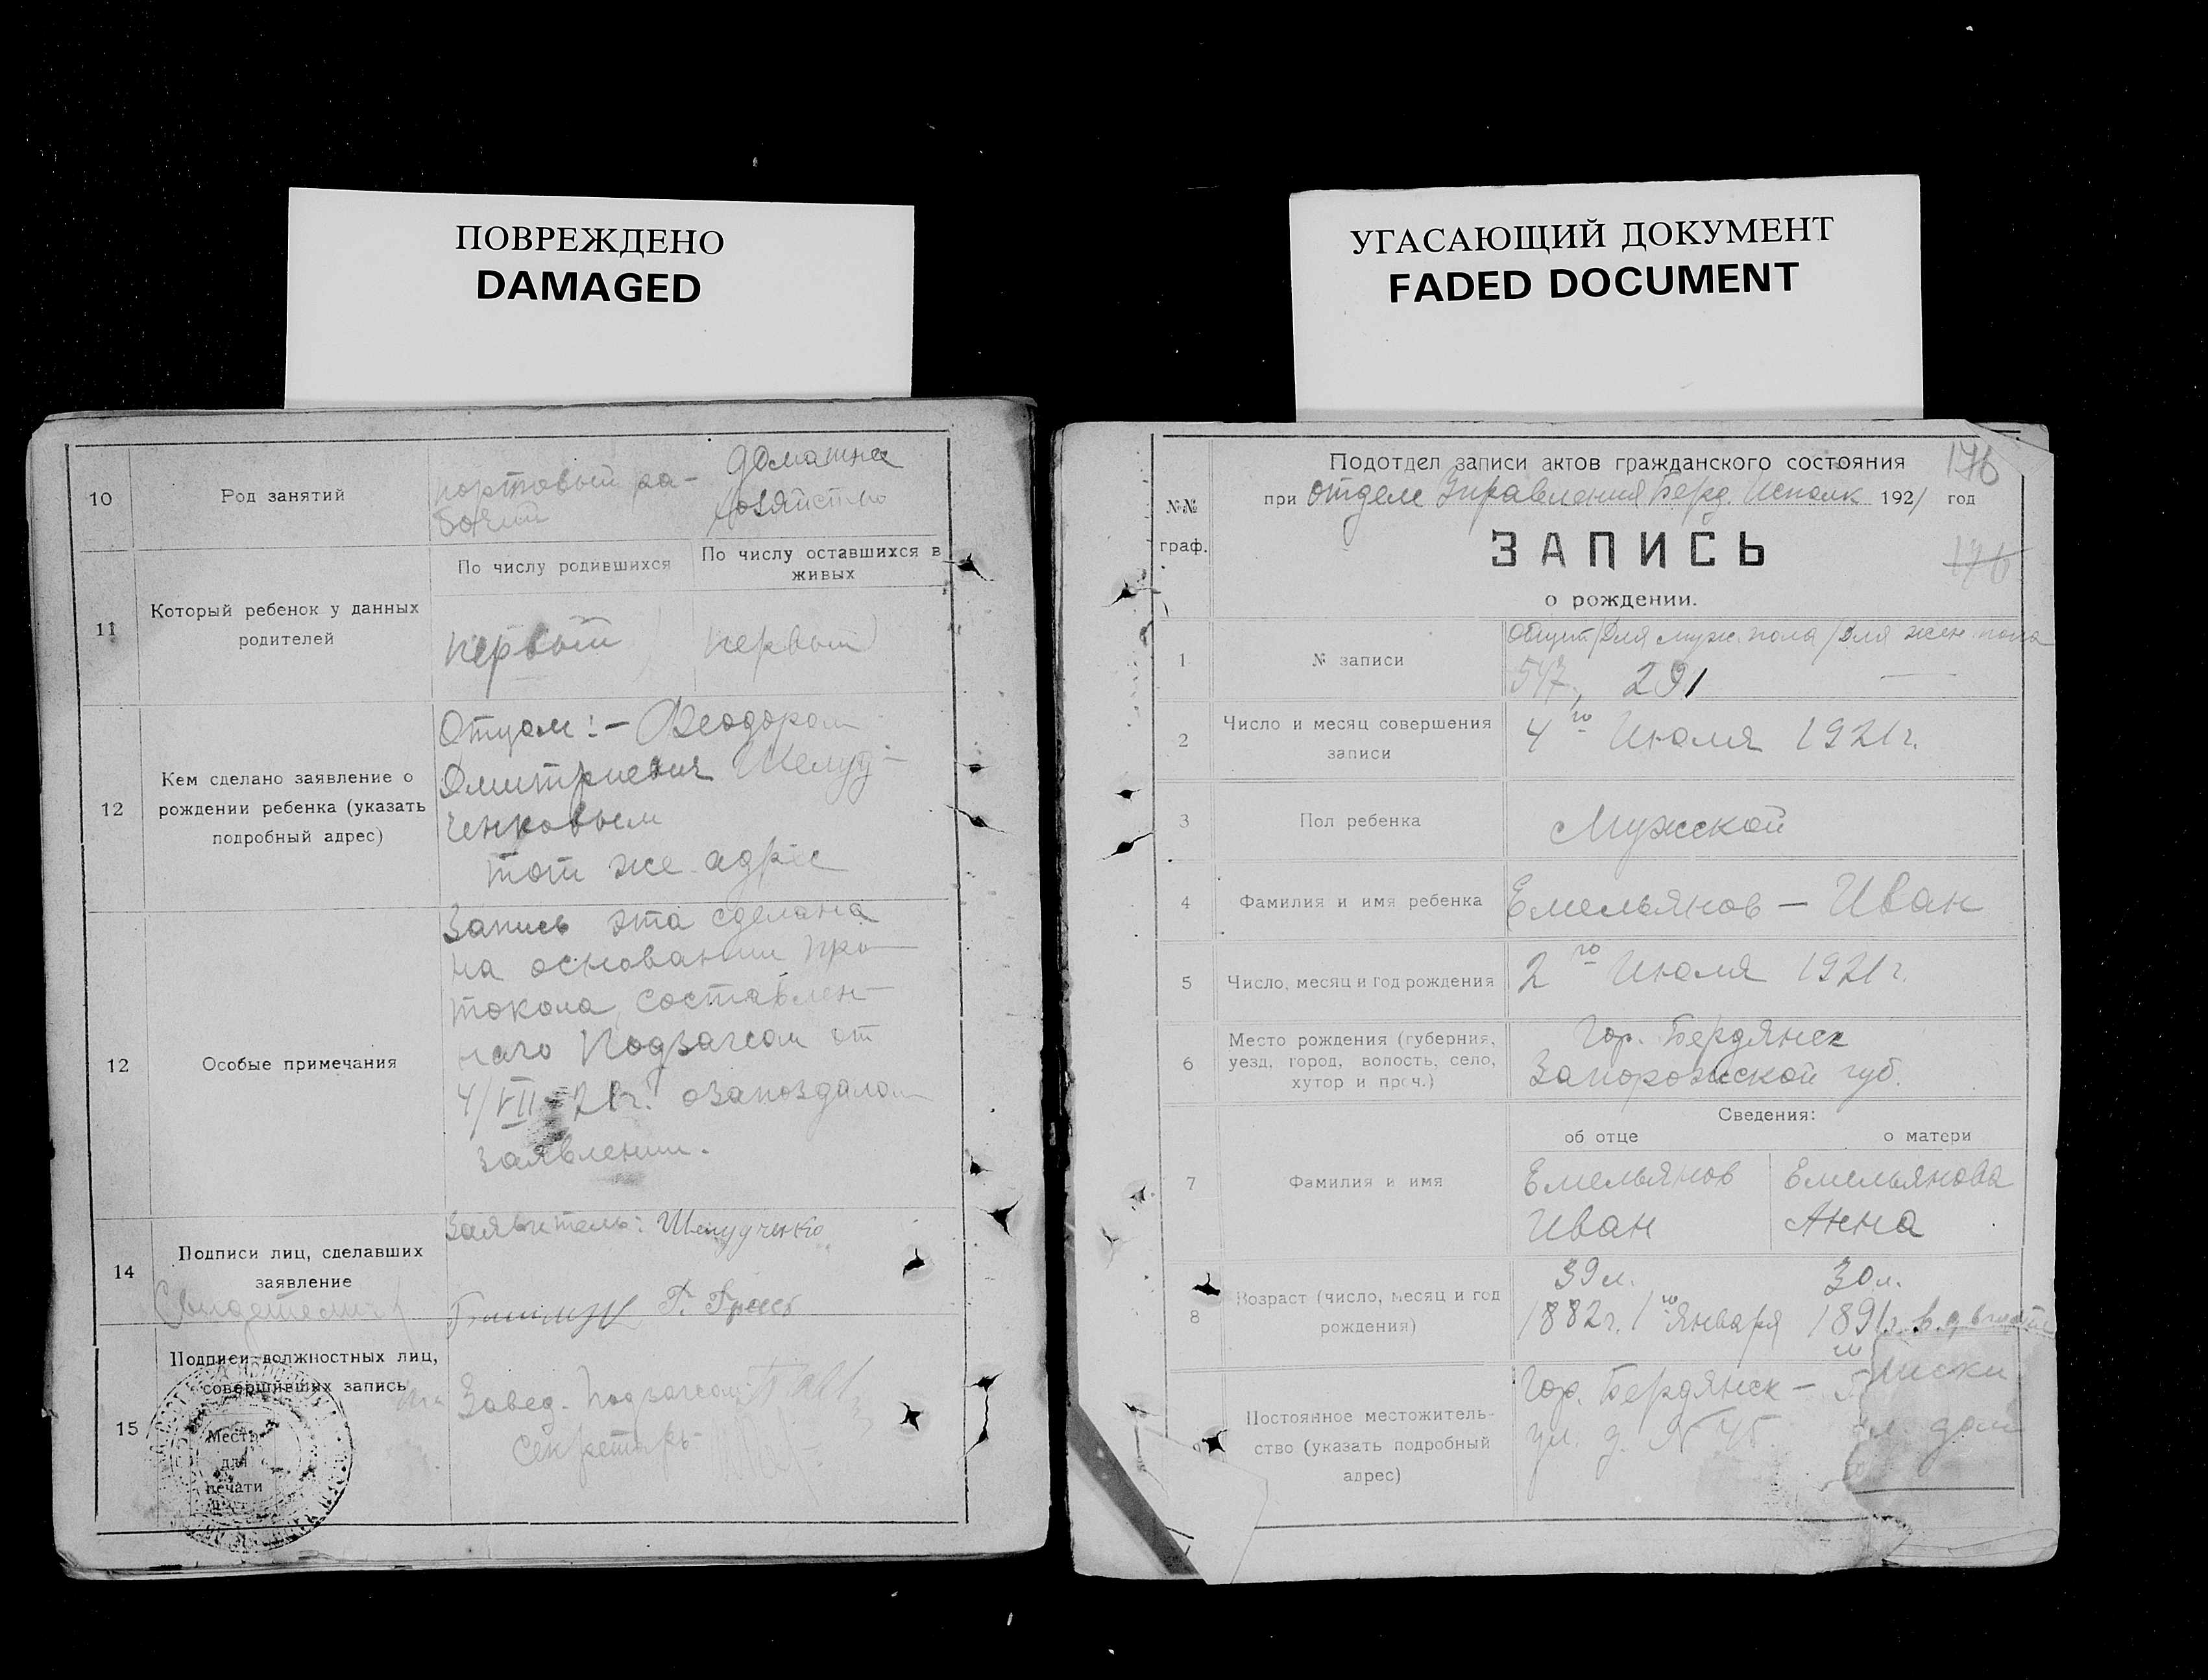 ПОВРЕЖДЕНО
DAMAGED
10
Род занятий
портовый ра-
бочий
домашнее
хозяйство
11
Который ребенок у данных
родителей
По числу родившихся
По числу оставшихся в
живых
первый
первый
12
Кем сделано заявление о
рождении ребенка (указать
подробный адрес)
Отцом: – Феодором
Дмитриевич Шелуд-
ченковым
тот же адрес
12
Особые примечания
Запись эта сделана
на основании про-
токола, составлен-
наго Подзагсом от
4/VII-21г. о запоздалом
заявлении.
14
Подписи лиц, сделавших
заявление
Свидетели
Заявитель: Шелудченко
Г.
15
Подписи должностных лиц,
совершивших запись
Место
для
печати
Завед. Подзагсом
Секретарь
УГАСАЮЩИЙ ДОКУМЕНТ
FADED DOCUMENT
176
№№
граф.
Подотдел записи актов гражданского состояния
при отделе Управления Берд. Исполк 1921 год
ЗАПИСЬ
176
о рождении.
1
№ записи
общий/для муж. пола/для жен. пола
547, 291 —
2
Число и месяц совершения
записи
4го Июля 1921г.
3
Пол ребенка
Мужской
4
Фамилия и имя ребенка
Емельянов – Иван
5
Число, месяц и год рождения
2го Июля 1921г.
6
Место рождения (губерния,
уезд, город, волость, село,
хутор и проч.)
Гор. Бердянск
Запорожской губ.
Сведения:
об отце
о матери
7
Фамилия и имя
Емельянов
Иван
Емельянова
Анна
8
Возраст (число, месяц и год
рождения)
39 л.
1882г. 1го Января
30 л.
1891г.
Постоянное местожитель-
ство (указать подробный
адрес)
Гор. Бердянск –
ул. д. №
дом